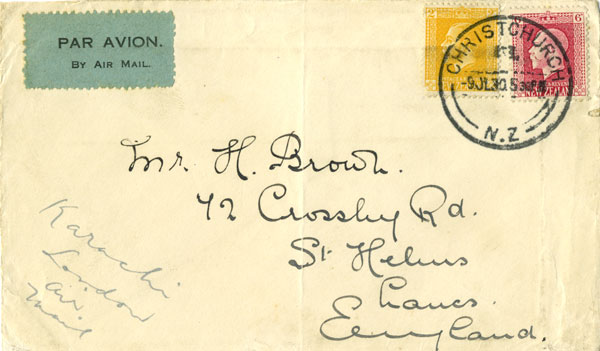 PAR AVION.
BY AIR MAIL.
2
6
CHRISTCHURCH
-9JL30.5 30PM
N.Z
Mr. H. Brown.
72 Crossley Rd.
St Helens
Lancs.
England.
Karachi
London
air
mail